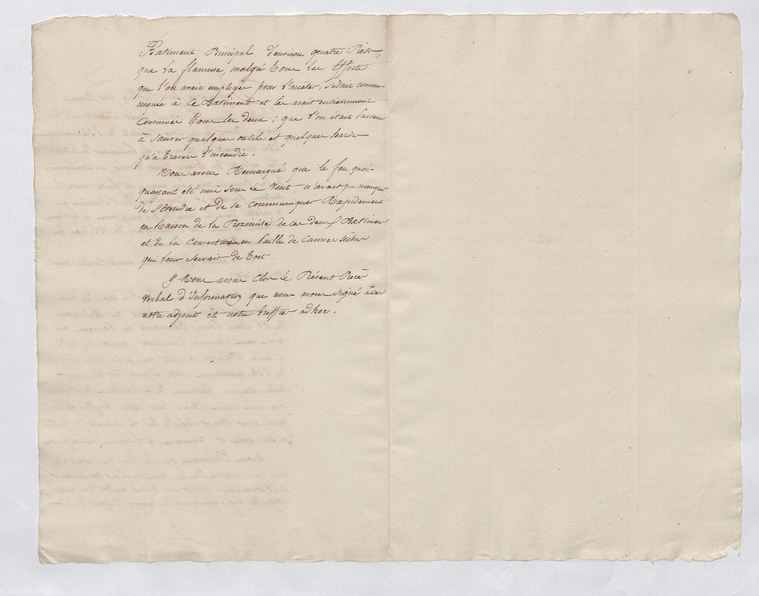 Batiment Principal d'environ quatre Pieds,
que la flamme, malgré Tous les Efforts
que l'on avait employés pour l'arreter, s'etait commu-
niquée à ce Batiment et les avait entierement
Consumés Tous les deux; que l'on etait parvenu
à sauver quelques outils et quelques hardes
qu'a Travers l'incendie.
Nous avons Remarqué que le feu quoi-
qu'ayant eté mis sous le Vent n'avait pu manquer
de s'Etendre et de se communiquer Rapidement
en Raison de la Proximité de ces deux Batimens
et de la Couverture en Paille de Cannes séches
qui leur servait de Toit
Nous avons Clos le Présent Procès
Verbal d'Information que nous avons signé avec
notre adjoint et notre Greffier adhoc.